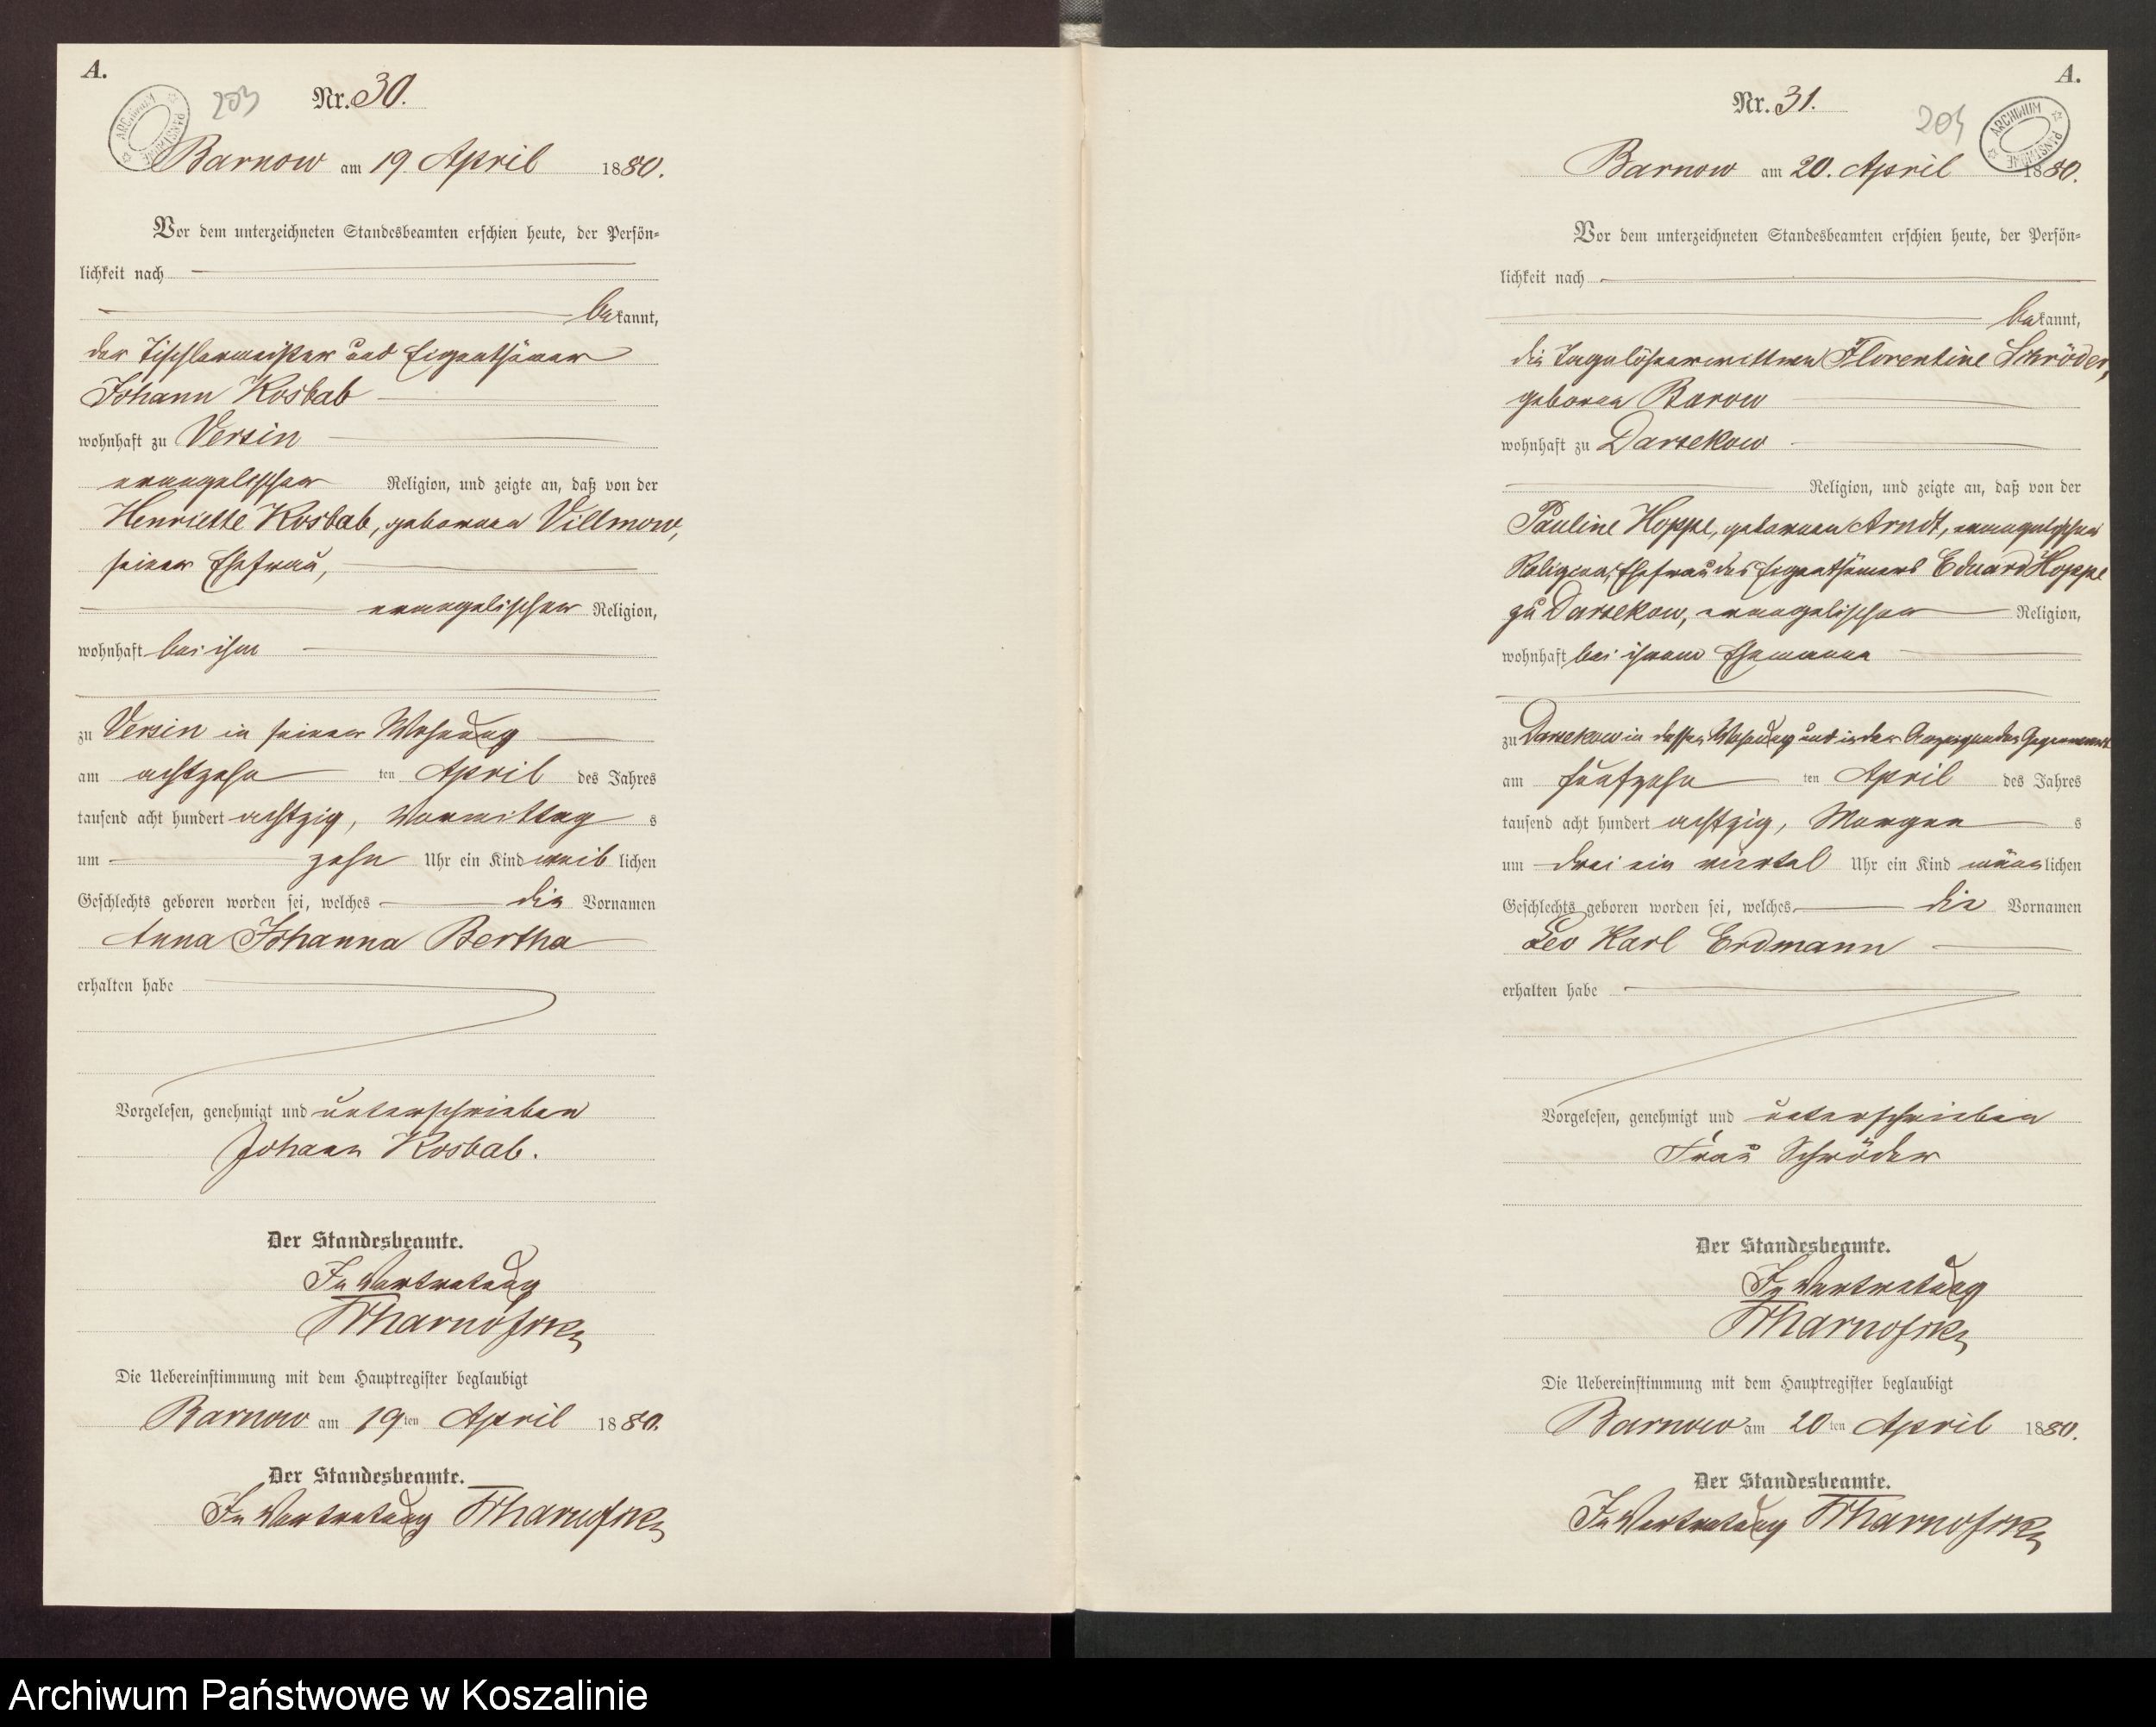 A.
203
Nr. 30.
ARCHIWUM PAŃSTWOWE
Barnow am 19. April 1880.
Vor dem unterzeichneten Standesbeamten erschien heute, der Persön-
lichkeit nach
bekannt,
der Tischlermeister und Eigenthümer
Johann Kosbab
wohnhaft zu Versin
evangelischer Religion, und zeigte an, daß von der
Henriette Kosbab, geborenen Villmow,
seiner Ehefrau,
evangelischer Religion,
wohnhaft bei ihm
zu Versin in seiner Wohnung
am achtzehn ten April des Jahres
tausend acht hundert achtzig, Vormittag s
um zehn Uhr ein Kind weib lichen
Geschlechts geboren worden sei, welches die Vornamen
Anna Johanna Bertha
erhalten habe
Vorgelesen, genehmigt und unterschrieben
Johann Kosbab.
Der Standesbeamte.
In Vertretung
Die Uebereinstimmung mit dem Hauptregister beglaubigt
Barnow am 19 ten April 1880.
Der Standesbeamte.
In Vertretung
A.
Nr. 31.
204
ARCHIWUM PAŃSTWOWE
Barnow am 20. April 1880.
Vor dem unterzeichneten Standesbeamten erschien heute, der Persön-
lichkeit nach
bekannt,
die Tagelöhnerwittwe Florentine Schröder,
geborene Barow
wohnhaft zu Darsekow
Religion, und zeigte an, daß von der
Pauline Hoppe, geborenen Arndt, evangelischer
Religion, Ehefrau des Eigenthümers Eduard Hoppe
zu Darsekow, evangelischer Religion,
wohnhaft bei ihrem Ehemanne
zu Darsekow in dessen Wohnung und in der Anzeigenden Gegenwart
am fünfzehn ten April des Jahres
tausend acht hundert achtzig, Morgen s
um drei ein viertel Uhr ein Kind männ lichen
Geschlechts geboren worden sei, welches die Vornamen
Leo Karl Erdmann
erhalten habe
Vorgelesen, genehmigt und unterschrieben
Frau Schröder
Der Standesbeamte.
In Vertretung
Die Uebereinstimmung mit dem Hauptregister beglaubigt
Barnow am 20 ten April 1880.
Der Standesbeamte.
In Vertretung
Archiwum Państwowe w Koszalinie